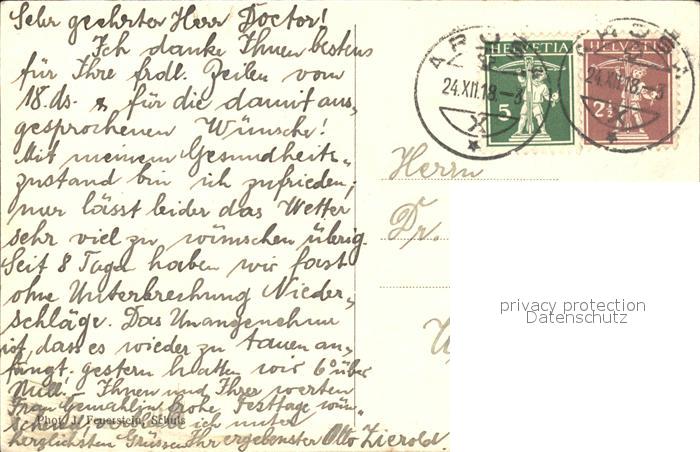 Sehr geehrter Herr Doctor!
Ich danke Ihnen bestens
für Ihre frdl. Zeilen vom
18. ds. & für die damit aus-
gesprochenen Wünsche!
Mit meinem Gesundheits-
zustand bin ich zufrieden;
nur lässt leider das Wetter
sehr viel zu wünschen übrig.
Seit 8 Tagen haben wir fast
ohne Unterbrechung Nieder-
schläge. Das Unangenehme
ist, dass es wieder zu tauen an-
fängt. gestern hatten wir 6° über
Null! Ihnen und Ihrer werten
Frau Gemahlin frohe Festtage wün-
schend verbleibe ich unter
herzlichsten Grüssen Ihr ergebenster Otto Zierold.
Phot. J. Feuerstein, Schuls
HELVETIA
5
HELVETIA
2½
AROSA
24.XII.18.-3
X
AROSA
24.XII.18.-3
X
Herrn
Dr.
privacy protection
Datenschutz